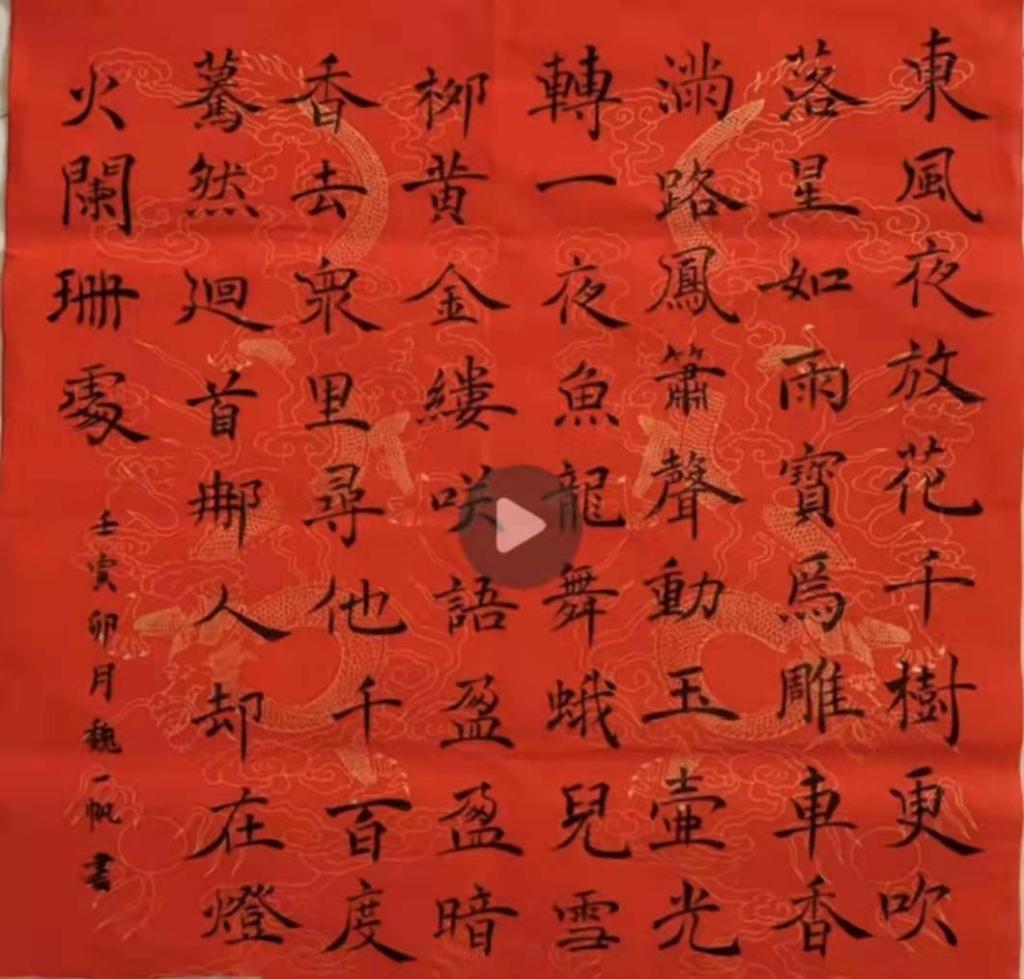 東風夜放花千樹更吹
落星如雨寶馬雕車香
滿路鳳簫聲動玉壺光
轉一夜魚龍舞蛾兒雪
柳黄金縷咲語盈盈暗
香去衆里尋他千百度
驀然迴首那人却在燈
火闌珊處
壬寅卯月魏一帆書